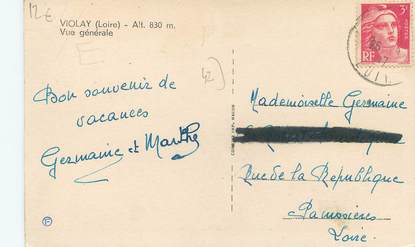 12€
VIOLAY (Loire) - Alt. 830 m.
Vue générale
42
Bon souvenir de
vacances
Germaine et Marthe
3F
RF
Mademoiselle Germaine
Rue de la République
Panissières
Loire